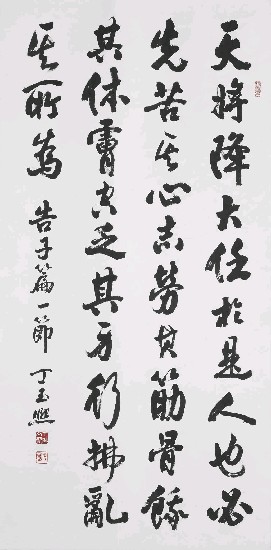 天將降大任於是人也必
先苦其心志勞其筋骨餓
其体膚空乏其身行拂亂
其所為 告子篇一節 丁玉